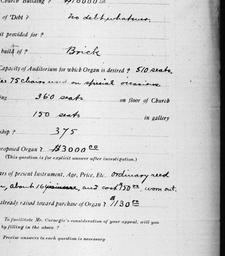 Church Building ? $10000.00
of 'Debt' ? No debt whatever.
it provided for ?
built of ? Brick
Capacity of Auditorium for which Organ is desired ? 510 seats.
75 chairs used on special occasions.
360 seats on floor of Church
150 seats in gallery
ship ? 375
proposed Organ ? $3000.00
(This question is for explicit answer after investigation.)
of present Instrument, Age, Price, Etc. Ordinary reed
about 16 and cost $150.00 worn out.
already raised toward purchase of Organ ? $1130.00
To facilitate Mr. Carnegie's consideration of your appeal, will you
by filling in the above ?
Precise answers to each question is necessary.